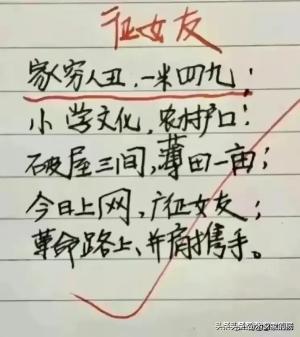 征女友
家穷人丑,一米四九;
小学文化,农村户口!
破屋三间,薄田一亩;
今日上网,广征女友;
革命路上、并肩携手。